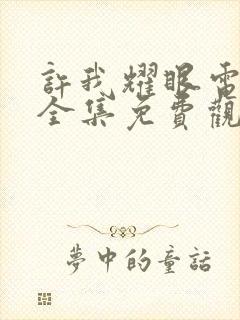 許我耀眼電
全集免費觀
夢中的童話